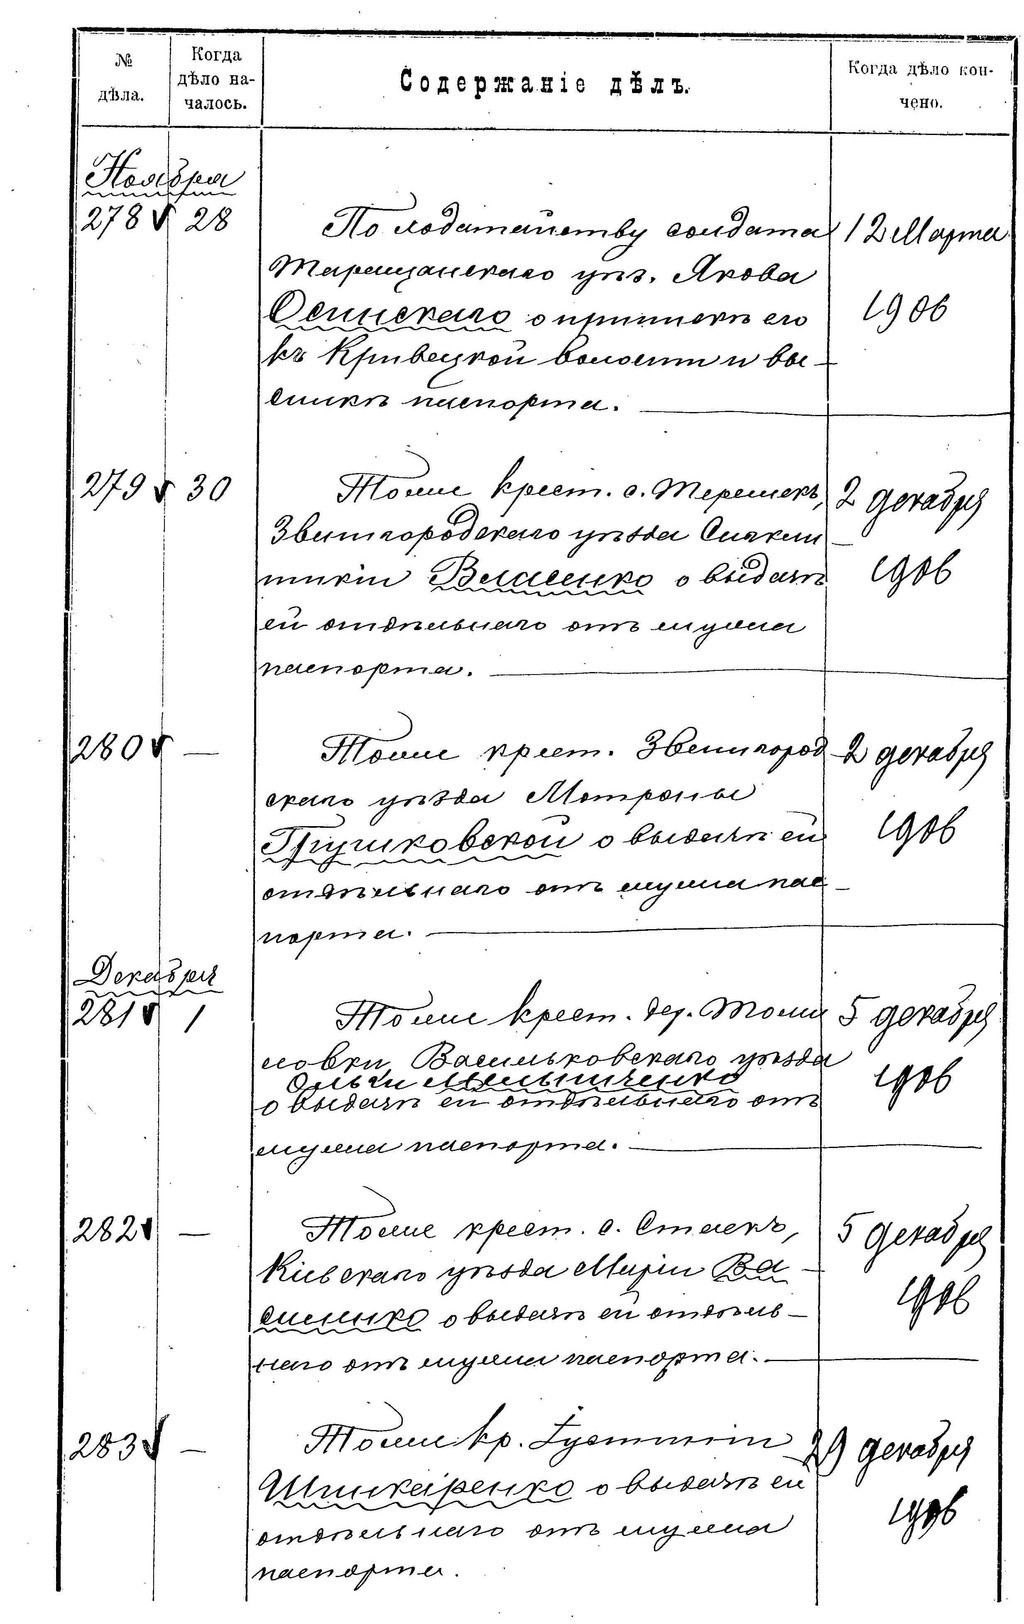 № дѣла.
Когда дѣло началось.
Содержаніе дѣлъ.
Когда дѣло кончено.
Ноября
278 28 По ходатайству солдата 12 Марта
Таращанскаго уѣз. Якова
Осинскаго о припискѣ его 1906
къ Кривецкой волости и вы-
сылкѣ паспорта.
279 30 Тоже крест. с. Терешекъ, 2 декабря
Звенигородскаго уѣзда
Власенко о выдачѣ 1906
ей отдѣльнаго отъ мужа
паспорта.
280 — Тоже крест. Звенигород 2 декабря
скаго уѣзда Мотроны
Грушковской о выдачѣ ей 1906
отдѣльнаго отъ мужа пас-
порта.
Декабря
281 1 Тоже крест. дер. Томи 5 декабря
ловки, Васильковскаго уѣзда
Ольги Мельниченко 1906
о выдачѣ ей отдѣльнаго отъ
мужа паспорта.
282 — Тоже крест. с. Стаекъ, 5 декабря
Кіевскаго уѣзда Маріи Ва-
силенко о выдачѣ ей отдѣль- 1906
наго отъ мужа паспорта.
283 — Тоже кр. Густиніи 29 декабря
Шинкаренко о выдачѣ ей 1906
отдѣльнаго отъ мужа
паспорта.